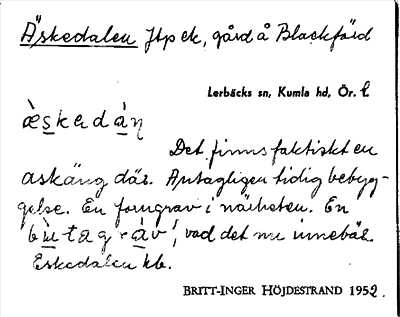 Äskedalen Jtp ek, gård å Blackfärd
Lerbäcks sn, Kumla hd, Ör. l
æ̀skadáṇ
Det finns faktiskt en
askäng där. Antagligen tidig bebyg-
gelse. En forngrav i närheten. En
bùtagràv, vad det nu innebär.
Eskedalen kb.
BRITT-INGER HÖJDESTRAND 1952.